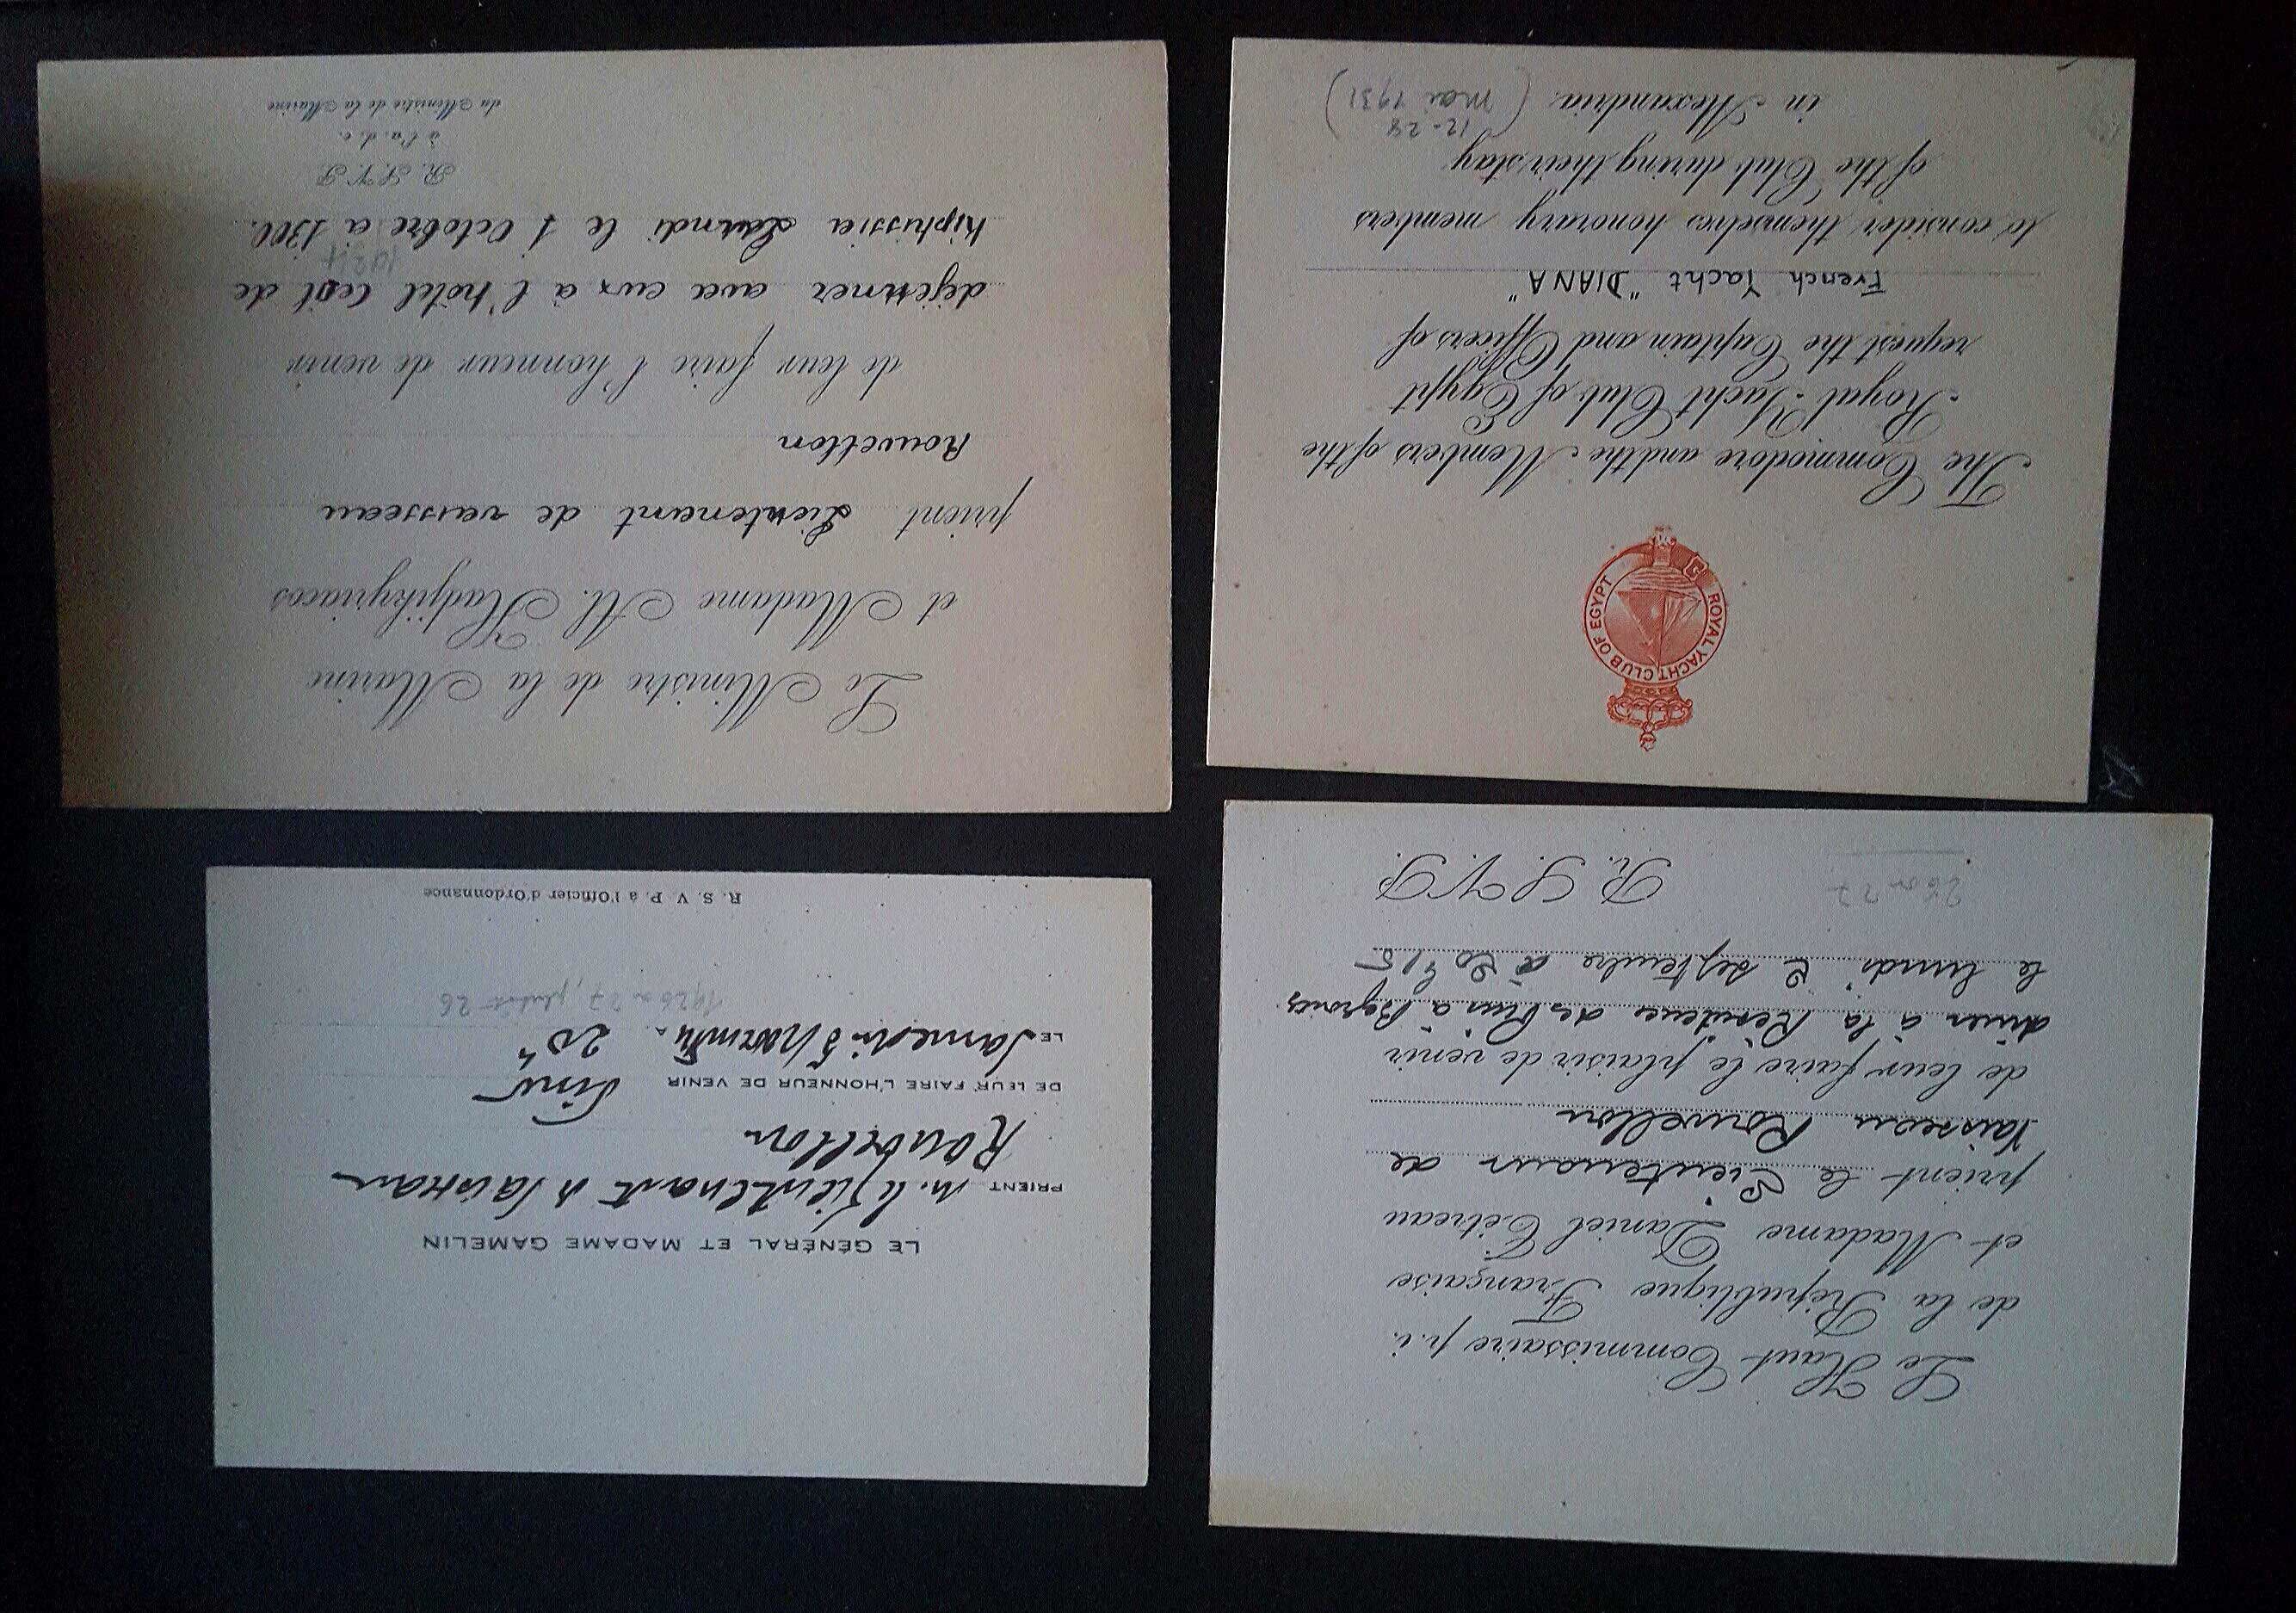 Le Haut Commissaire p.i.
de la République Française
et Madame Daniel Tétreau
prient le Lieutenant de
Vaisseau Rouvellon
de leur faire le plaisir de venir
diner à la Résidence des Pins à Beyrouth
le lundi 2 septembre à 20 h 15
R. S. V. P.
26 ou 27
LE GÉNÉRAL ET MADAME GAMELIN
PRIENT M. le Lieutenant de Vaisseau
Rouvellon
DE LEUR FAIRE L'HONNEUR DE VENIR Diner
LE Samedi 5 A 20h
1926 ou 27, plutôt 26
R. S. V. P. à l'Officier d'Ordonnance
ROYAL YACHT CLUB OF EGYPT
The Commodore and the Members of the
Royal Yacht Club of Egypt
request the Captain and Officers of
French Yacht "DIANA"
to consider themselves honorary members
of the Club during their stay
in Alexandria. (12-28
mai 1931)
Le Ministre de la Marine
et Madame Al. Hadjikyriacos
prient Lieutenant de vaisseau
Rouvellon
de leur faire l'honneur de venir
déjeuner avec eux à l'hôtel Cecil de
Kiphissia Lundi le 1 Octobre a 1300.
R. S. V. P.
à l'a. d. c.
du Ministre de la Marine